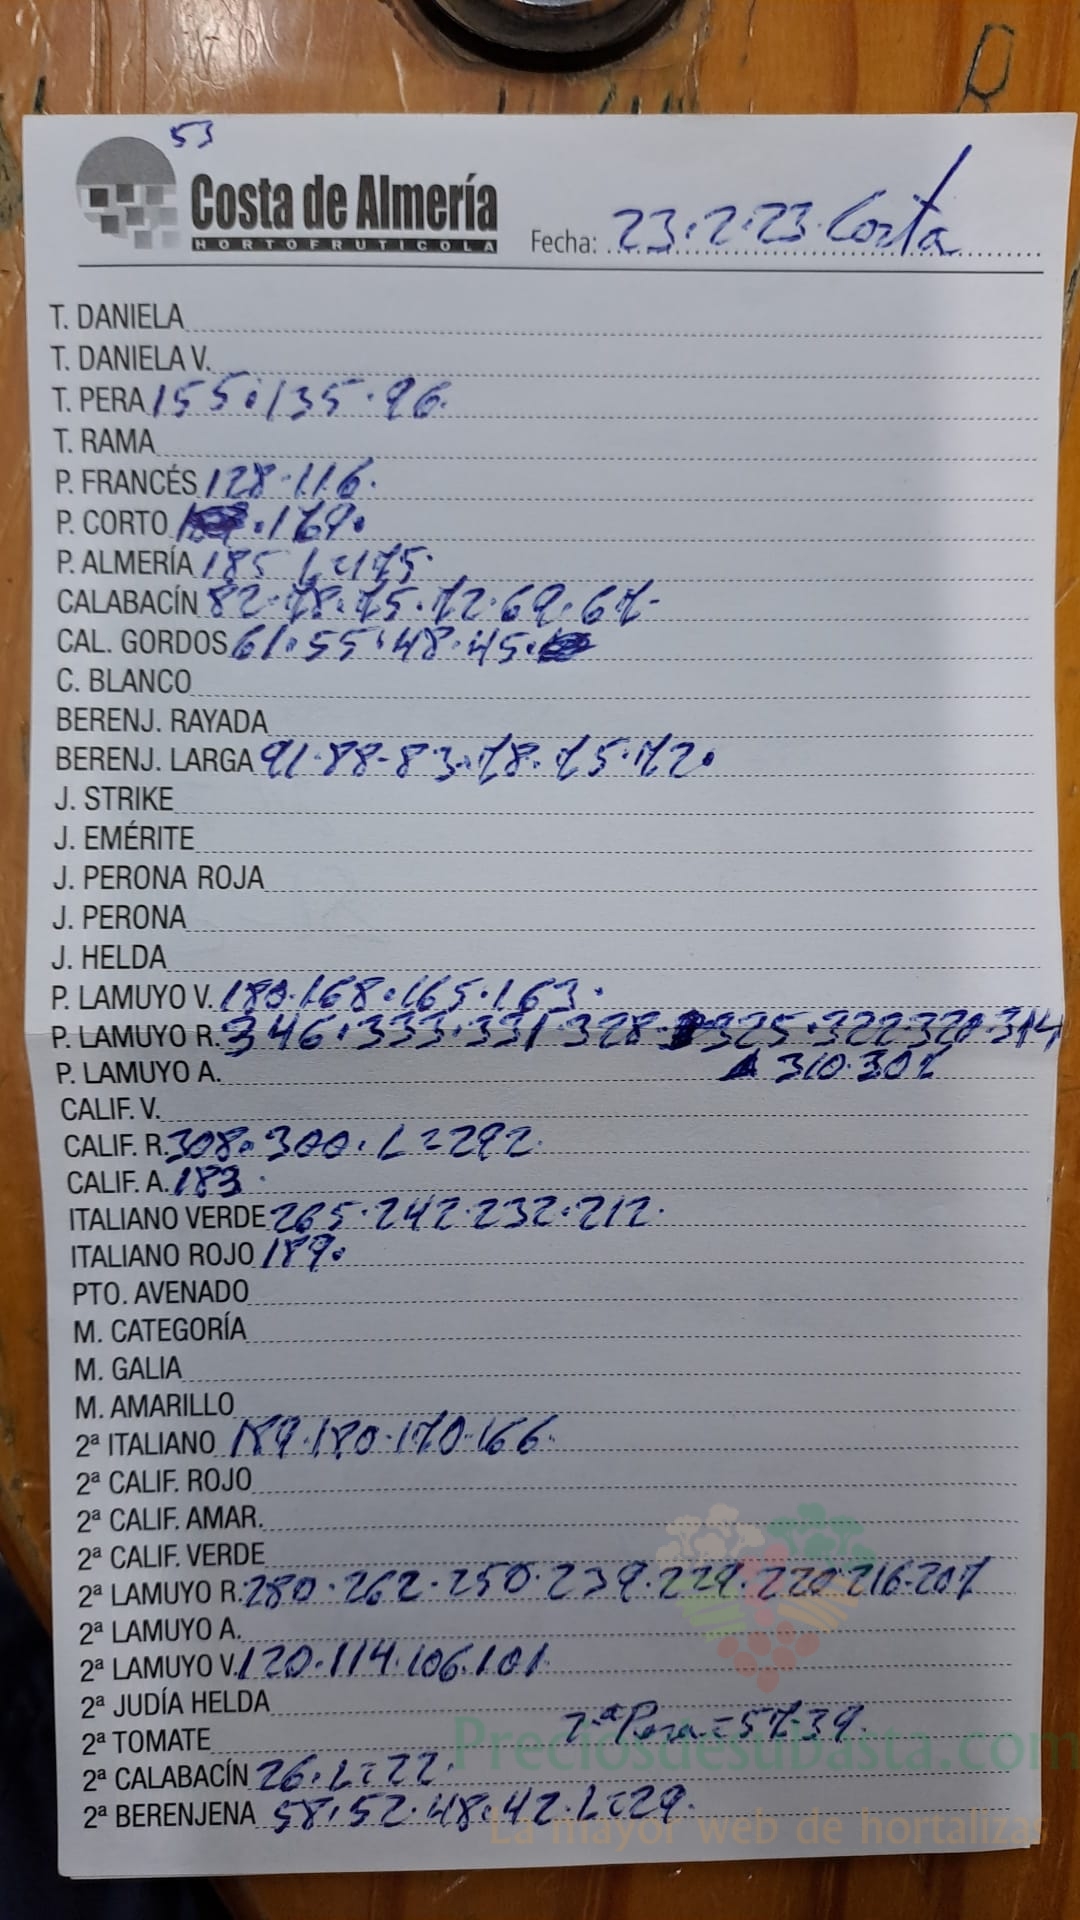 53
Costa de Almería
HORTOFRUTICOLA
Fecha: 23.2.23. Costa
T. DANIELA
T. DANIELA V.
T. PERA 155.135.96.
T. RAMA
P. FRANCÉS 128.116.
P. CORTO .169.
P. ALMERÍA 185 L=175.
CALABACÍN 82.78.75.72.69.67-
CAL. GORDOS 61.55.48.45.
C. BLANCO
BERENJ. RAYADA
BERENJ. LARGA 91.88-83.78.75.72.
J. STRIKE
J. EMÉRITE
J. PERONA ROJA
J. PERONA
J. HELDA
P. LAMUYO V. 180.168.165.163.
P. LAMUYO R. 346.333.331.328.325.322.320.314
P. LAMUYO A. 310.307
CALIF. V.
CALIF. R. 308.300.L=292.
CALIF. A. 183.
ITALIANO VERDE 265.242.232.212.
ITALIANO ROJO 189.
PTO. AVENADO
M. CATEGORÍA
M. GALIA
M. AMARILLO
2ª ITALIANO 189.180.170.166.
2ª CALIF. ROJO
2ª CALIF. AMAR.
2ª CALIF. VERDE
2ª LAMUYO R. 280.262.250.239.229.220.216.207
2ª LAMUYO A.
2ª LAMUYO V. 120.114.106.101
2ª JUDÍA HELDA
2ª TOMATE 2ª Pera=57.39.
2ª CALABACÍN 26.L=22.
2ª BERENJENA 58.52.48.42.L=29.
Preciosdesubasta.com
La mayor web de hortalizas